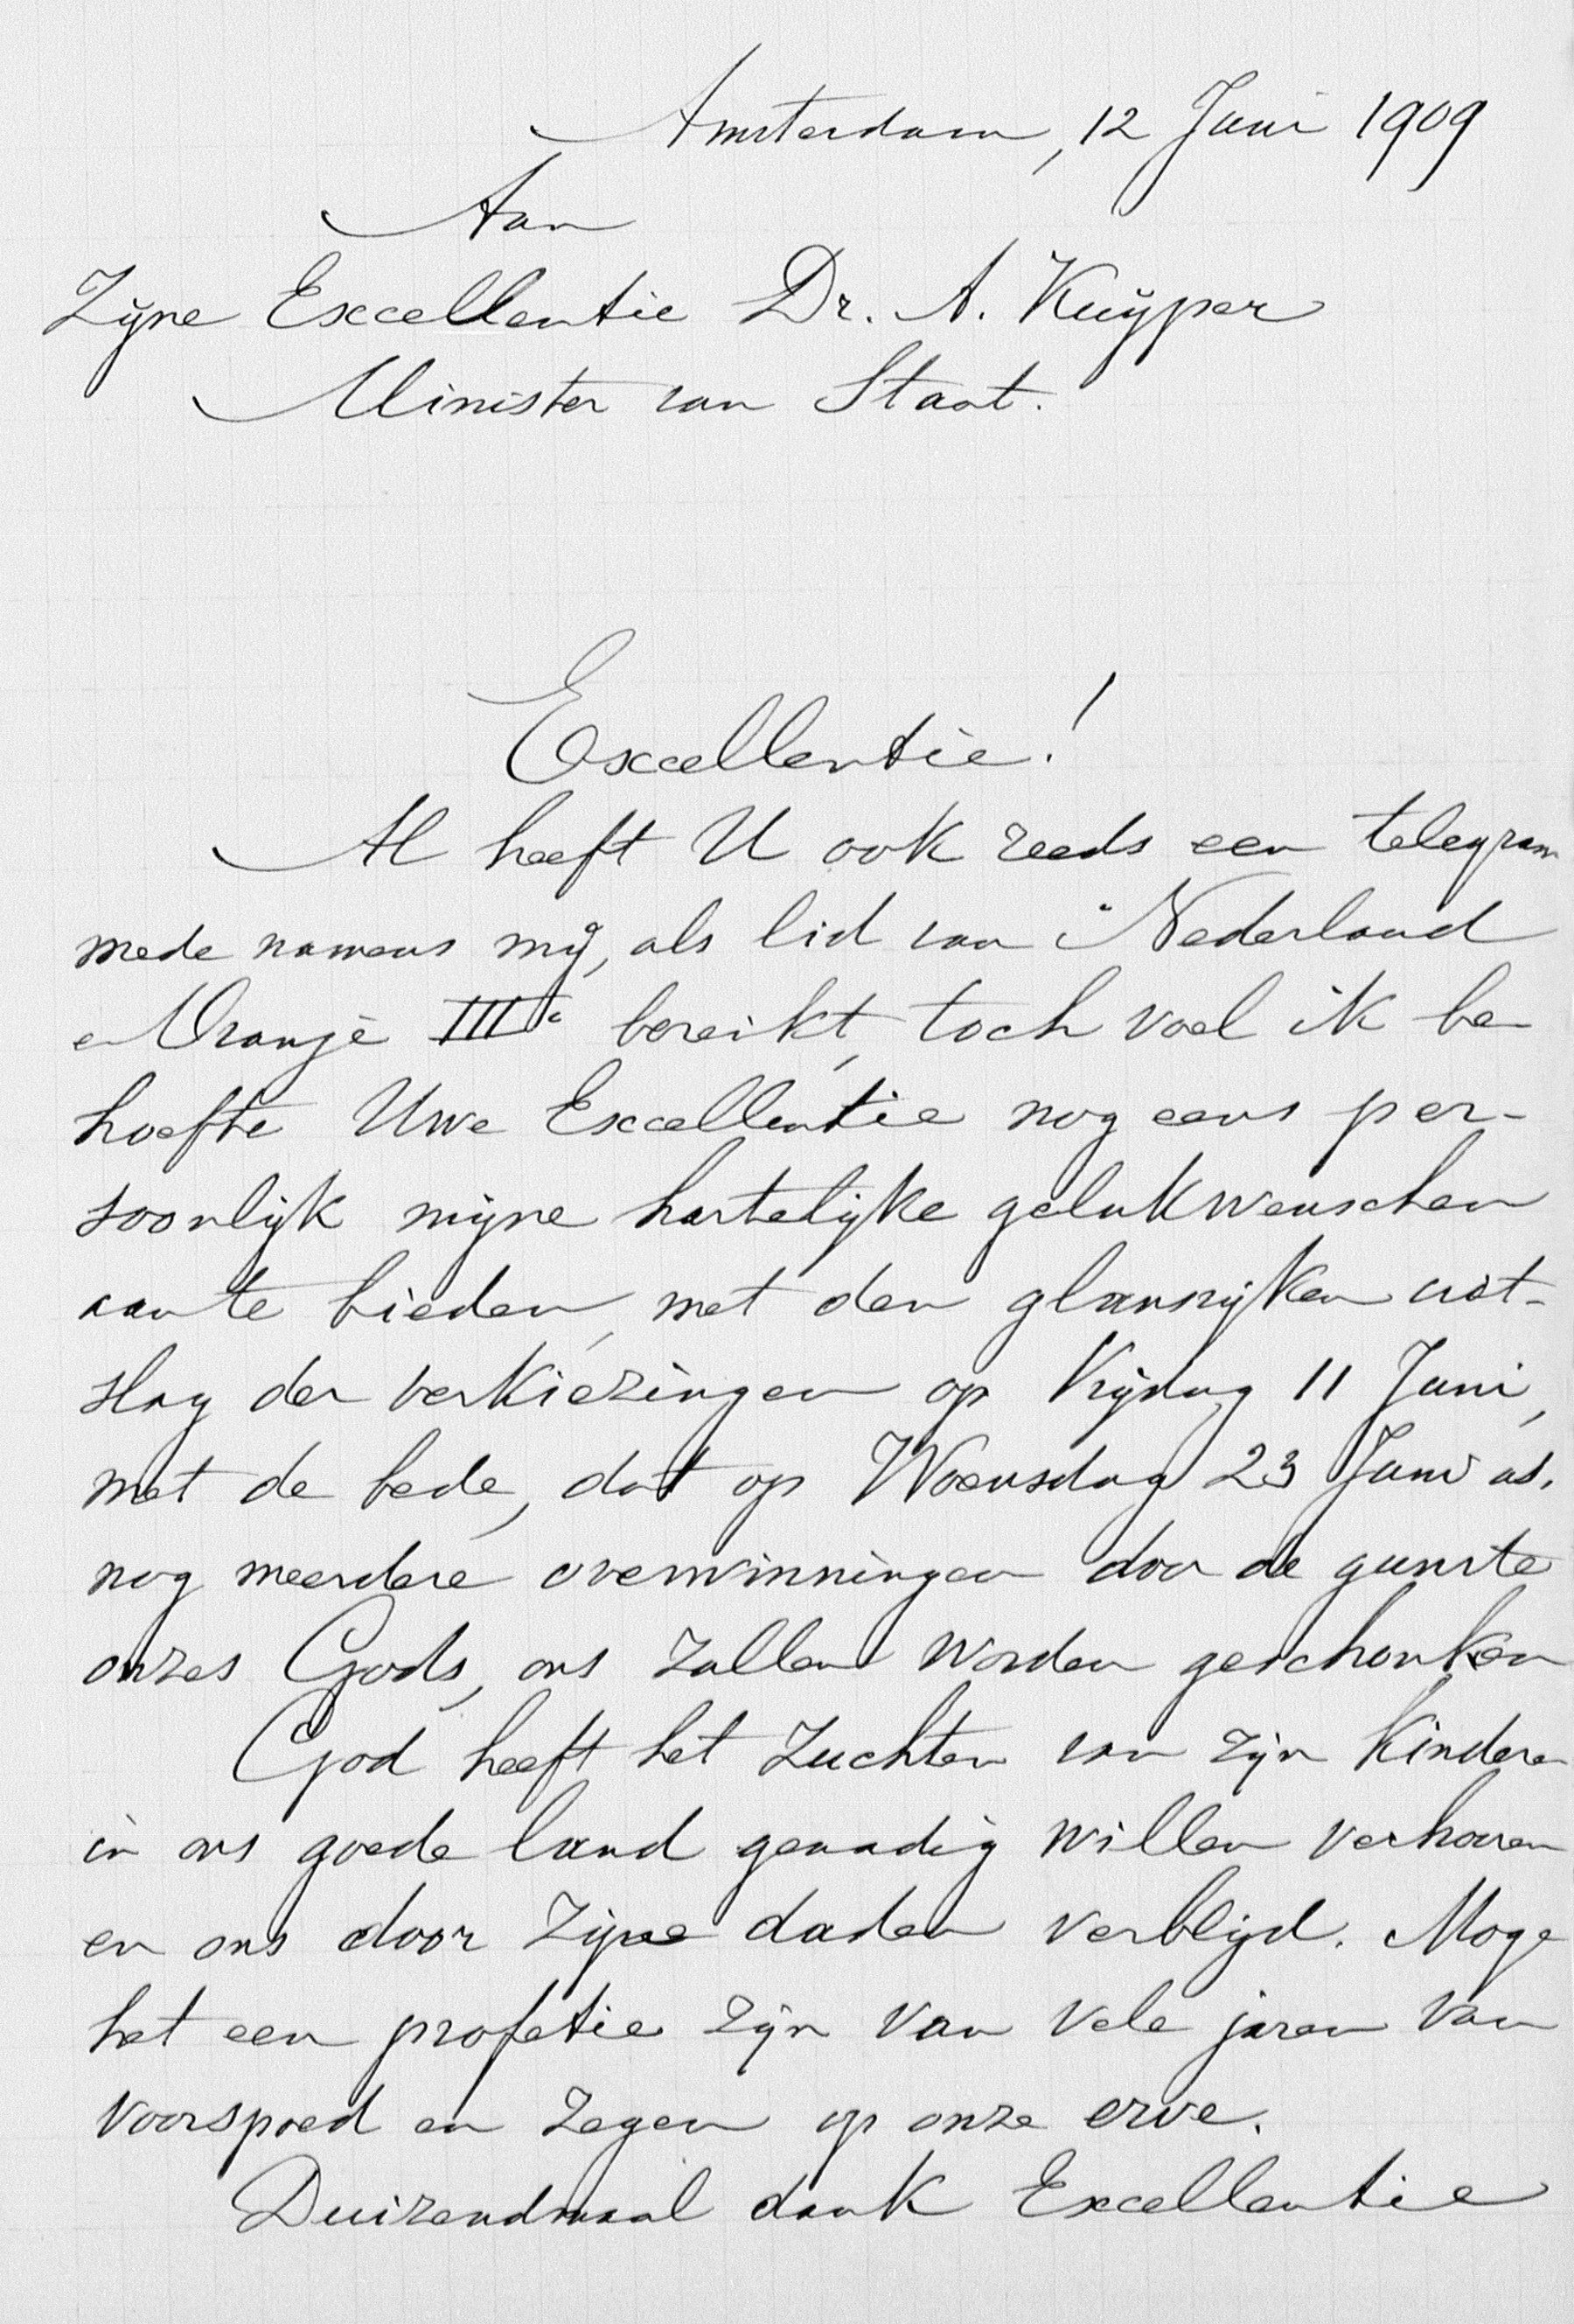 Amsterdam, 12 Juni 1909
Aan
Zijne Excellentie Dr. A. Kuijper
Minister van Staat.
Excellentie!
Al heeft U ook reeds een telegram
mede namens mij, als lid van "Nederland
en Oranje III" bereikt, toch voel ik be
hoefte Uwe Excellentie nog eens per-
soonlijk mijne hartelijke gelukwenschen
aan te bieden, met den glansrijken uit-
slag der verkiezingen op Vrijdag 11 Juni,
met de bede, dat op Woensdag 23 Juni as.
nog meerdere overwinningen door de gunste
onzes Gods, ons zullen worden geschonken
God heeft het zuchten van zijn kinderen
in ons goede land genadig willen verhooren
en ons door Zijne daden verblijd. Moge
het een profetie zijn van vele jaren van
voorspoed en zegen op onze erve.
Duizendmaal dank Excellentie